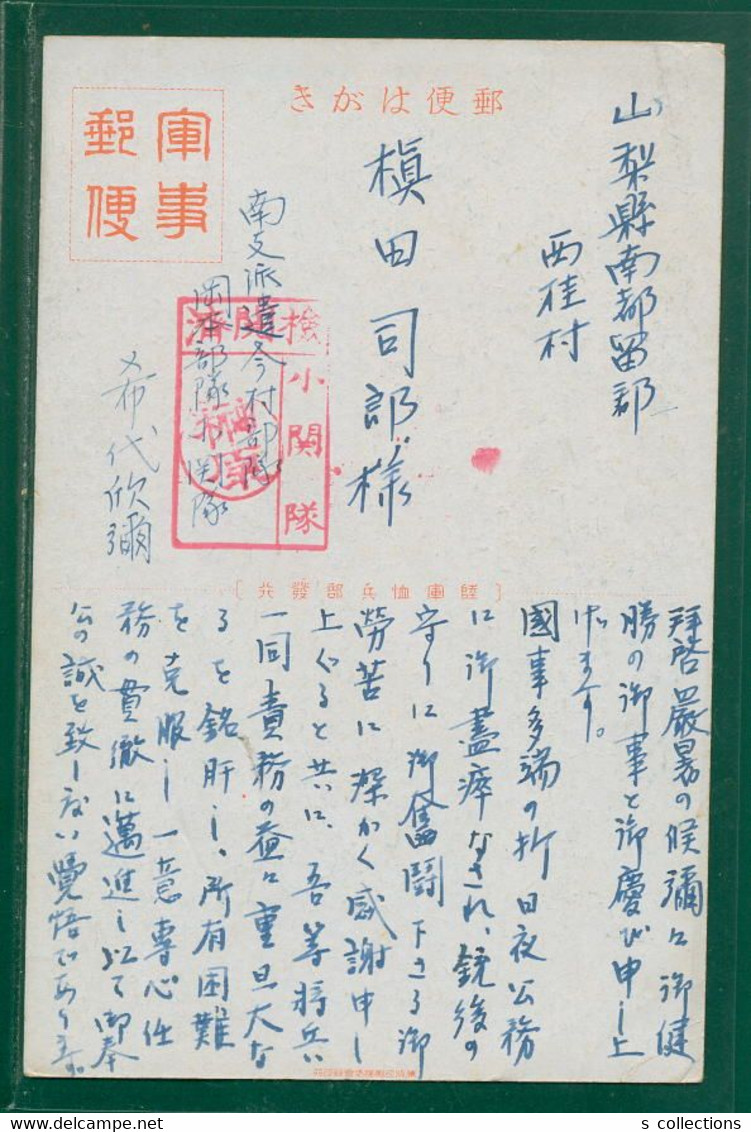 郵便はがき
軍事
郵便
山梨縣南都留郡
西桂村
槇田司郎様
南支派遣今村部隊
岡本部隊小関隊
希代欣彌
検閲済
小関隊
陸軍恤兵部發行
拝啓 嚴暑の候彌々御健
勝の御事と御慶び申し上
げます。
國事多端の折日夜公務
に御盡瘁なされ、銃後の
守りに御奮鬪下さる御
勞苦に深かく感謝申し
上ぐると共に、吾等將兵
一同責務の益々重且大な
るを銘肝し、所有困難
を克服し一意專心任
務の貫徹に邁進し以て御奉
公の誠を致しない覺悟であります。
s collections